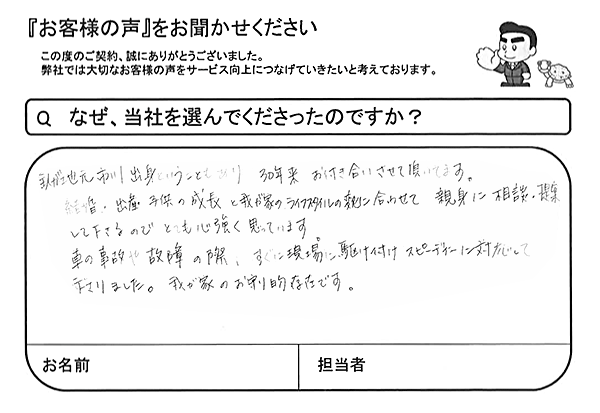 『お客様の声』をお聞かせください
この度のご契約、誠にありがとうございました。
弊社では大切なお客様の声をサービス向上につなげていきたいと考えております。
Q なぜ、当社を選んでくださったのですか？
地元市川出身ということもあり 30年来 お付き合いさせて頂いてます。
結婚・出産 子供の成長と我が家のライフスタイルの変化に合わせて 親身に相談・提案
して下さるので とても心強く思っています。
車の事故や故障の際、すぐに現場に駆け付け スピーディーに対応して
下さりました。我が家のお守り的存在です。
お名前
担当者